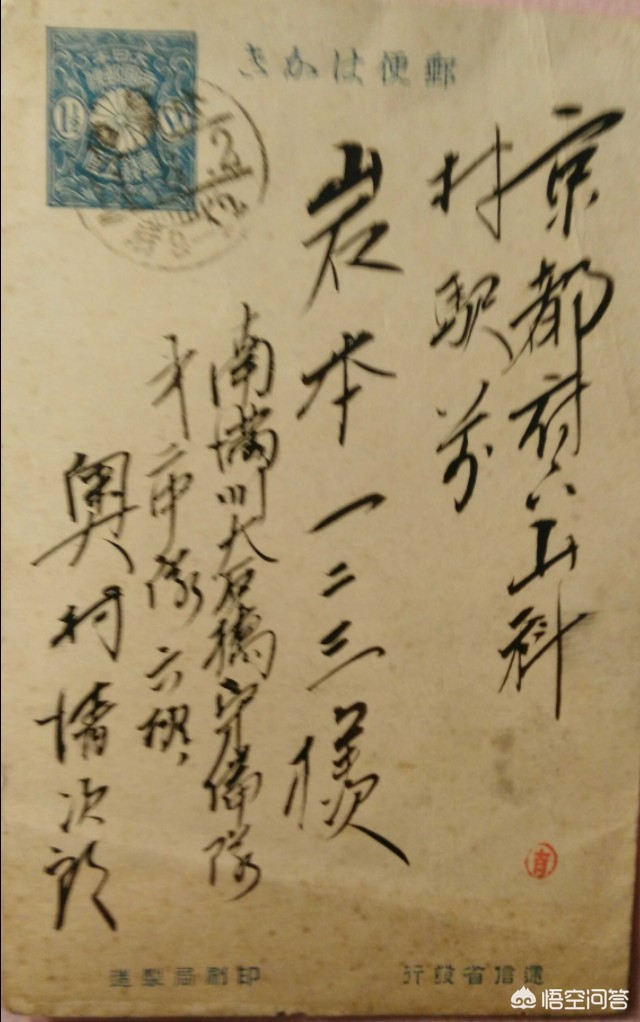 郵便はかき
京都府下山科
村駅前
岩本一二三様
南満州大石橋守備隊
第二中隊六班
奥村清次郎
1½
逓信省発行
印刷局製造
悟空问答